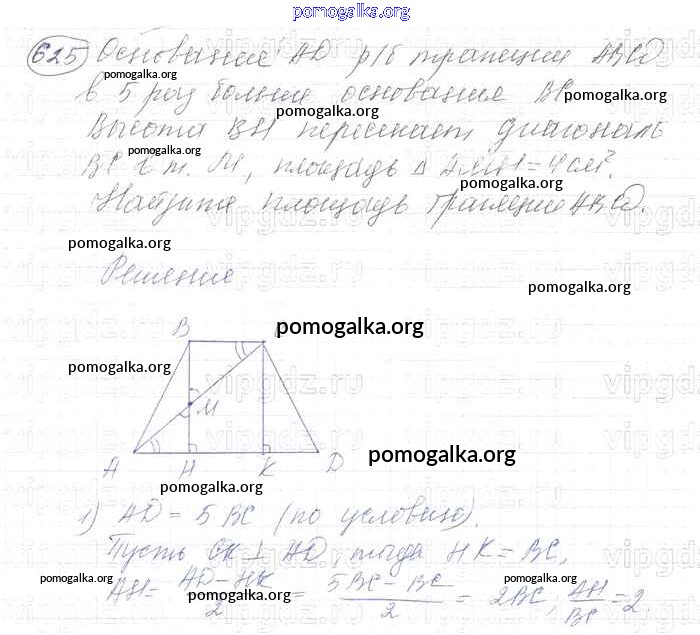 pomogalka.org
625 Основание AD р/б трапеции ABCD
pomogalka.org
в 5 раз больше основания BC
pomogalka.org
pomogalka.org
Высота BH пересекает диагональ
pomogalka.org
BC в т. M, площадь Δ AMH = 4 см².
pomogalka.org
Найдите площадь трапеции ABCD.
pomogalka.org
Решение
pomogalka.org
vipgdz.ru
B
pomogalka.org
pomogalka.org
vipgdz.ru
M
pomogalka.org
A H K D
pomogalka.org
1) AD = 5 BC (по условию).
Пусть CK ⊥ AD, тогда HK = BC,
pomogalka.org pomogalka.org
AH = AD - HK / 2 = 5BC - BC / 2 = 2BC; AH / BC = 2.
pomogalka.org